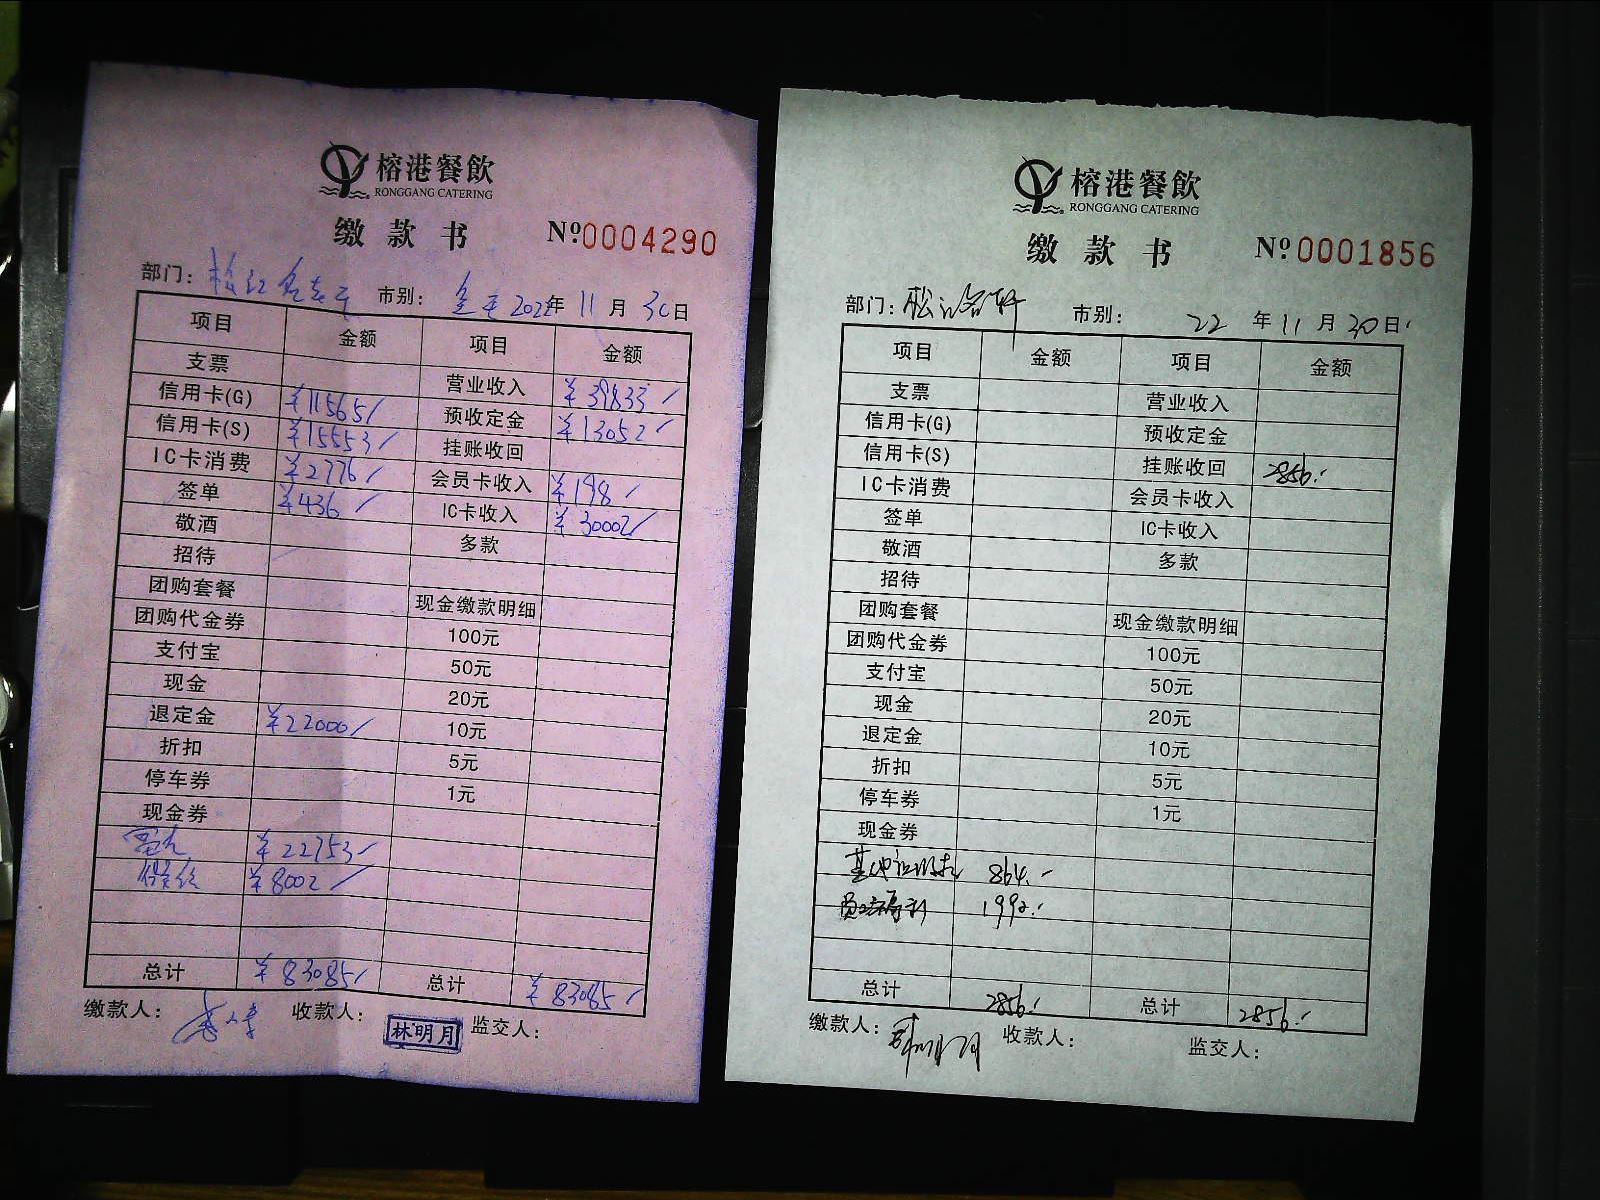 榕港餐飲
RONGGANG CATERING
缴款书 №0004290
部门: 市别: 全天 2022年 11月 30日
项目 金额 项目 金额
支票 营业收入 ¥39833
信用卡(G) ¥11565 预收定金 ¥13052
信用卡(S) ¥15553 挂账收回
IC卡消费 ¥2776 会员卡收入 ¥198
签单 ¥436 IC卡收入 ¥30002
敬酒 多款
招待
团购套餐 现金缴款明细
团购代金券 100元
支付宝 50元
现金 20元
退定金 ¥22000 10元
折扣 5元
停车券 1元
现金券
¥22753
¥8002
总计 ¥83085 总计 ¥83085
缴款人: 收款人: 林明月 监交人:
榕港餐飲
RONGGANG CATERING
缴款书 №0001856
部门: 市别: 22年 11月 30日
项目 金额 项目 金额
支票 营业收入
信用卡(G) 预收定金
信用卡(S) 挂账收回 2856.-
IC卡消费 会员卡收入
签单 IC卡收入
敬酒 多款
招待
团购套餐 现金缴款明细
团购代金券 100元
支付宝 50元
现金 20元
退定金 10元
折扣 5元
停车券 1元
现金券
864.-
1992.-
总计 2856.- 总计 2856.-
缴款人: 收款人: 监交人: